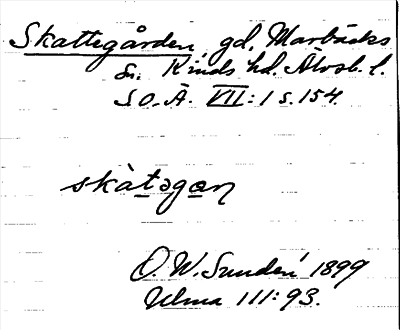 Skattegården, gd, Marbäcks
sn. Kinds hd. Älvsb. l.
SO.Ä. VII:1 s.154.
skàtəgan
O.W.Sundén 1899
Ulma 111:93.